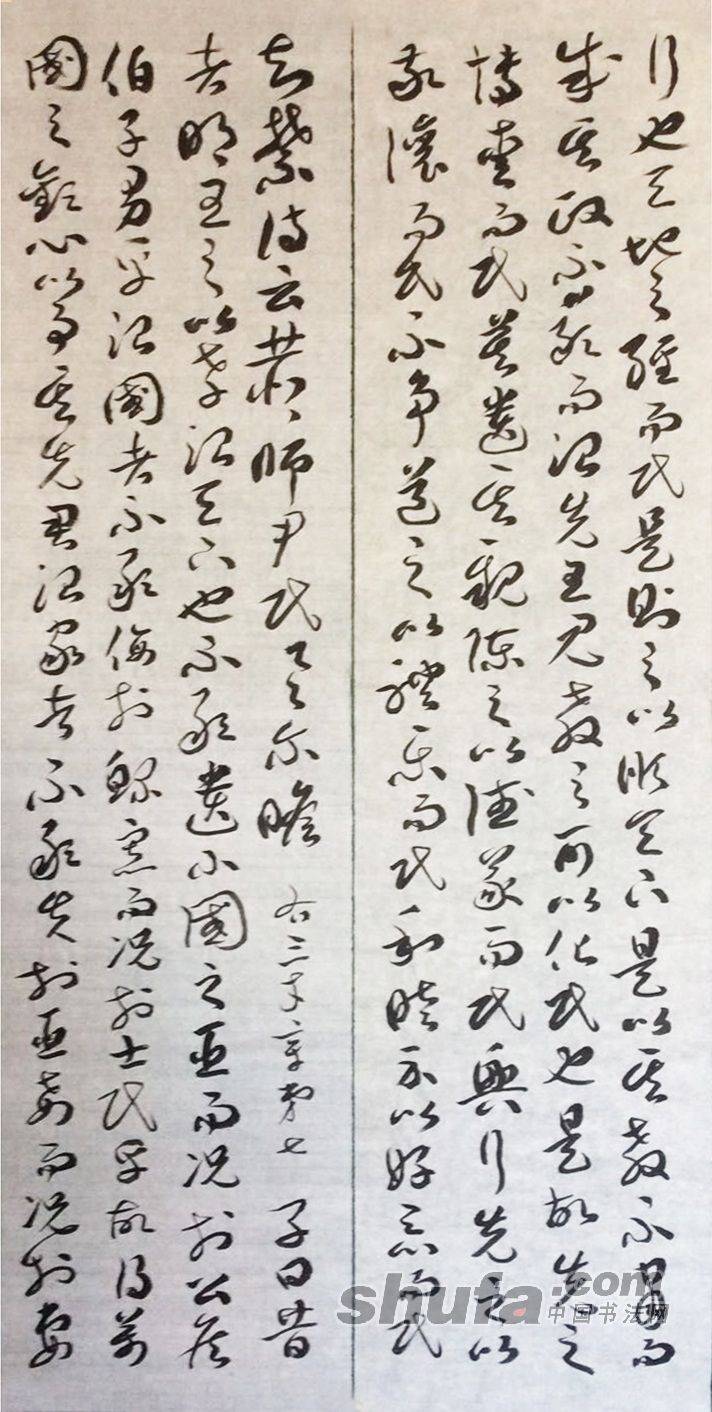 行也天地之經而民是則之以順天下是以其教不肅而
成其政不嚴而治先王見教之可以化民也是故先之
博愛而民莫遺其親陳之以德義而民興行先之以
敬讓而民不爭道之以禮樂而民和睦示以好惡而民
知禁詩云赫赫師尹民具爾瞻 右三才章第七 子曰昔
者明王之以孝治天下也不敢遺小國之臣而況於公侯
伯子男乎治國者不敢侮於鰥寡而況於士民乎故得萬
國之歡心以事其先君治家者不敢失於臣妾而況於妻
shufa.com
中国书法网